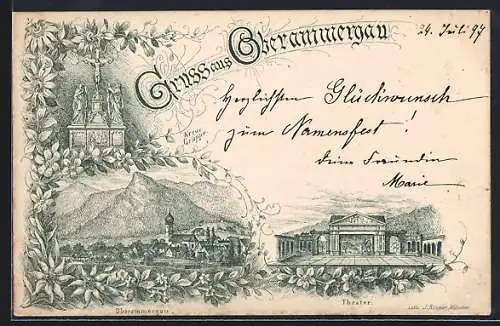 Gruss aus Oberammergau
24. Juli 97
Herzlichsten Glückwunsch
zum Namensfest!
Deine Freundin
Marie
Kreuz
Gruppe
Oberammergau
Theater.